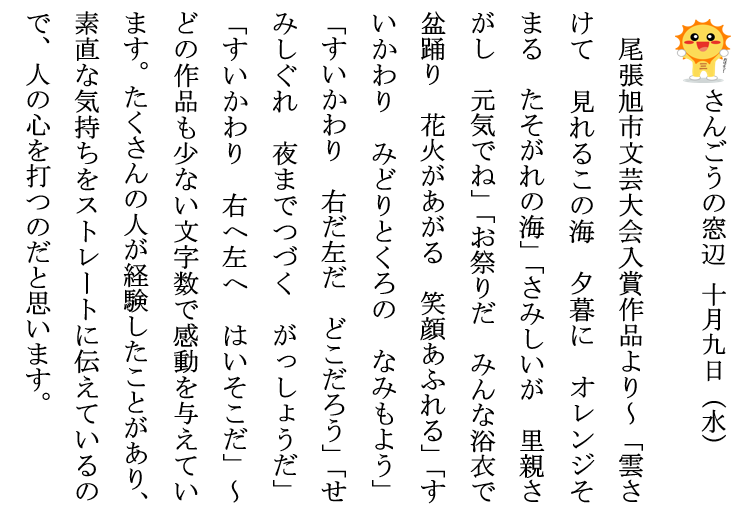 さんごうの窓辺 十月九日（水）
尾張旭市文芸大会入賞作品より～「雲さ
けて 見れるこの海 夕暮に オレンジそ
まる たそがれの海」「さみしいが 里親さ
がし 元気でね」「お祭りだ みんな浴衣で
盆踊り 花火があがる 笑顔あふれる」「す
いかわり みどりとくろの なみもよう」
「すいかわり 右だ左だ どこだろう」「せ
みしぐれ 夜までつづく がっしょうだ」
「すいかわり 右へ左へ はいそこだ」～
どの作品も少ない文字数で感動を与えてい
ます。たくさんの人が経験したことがあり、
素直な気持ちをストレートに伝えているの
で、人の心を打つのだと思います。